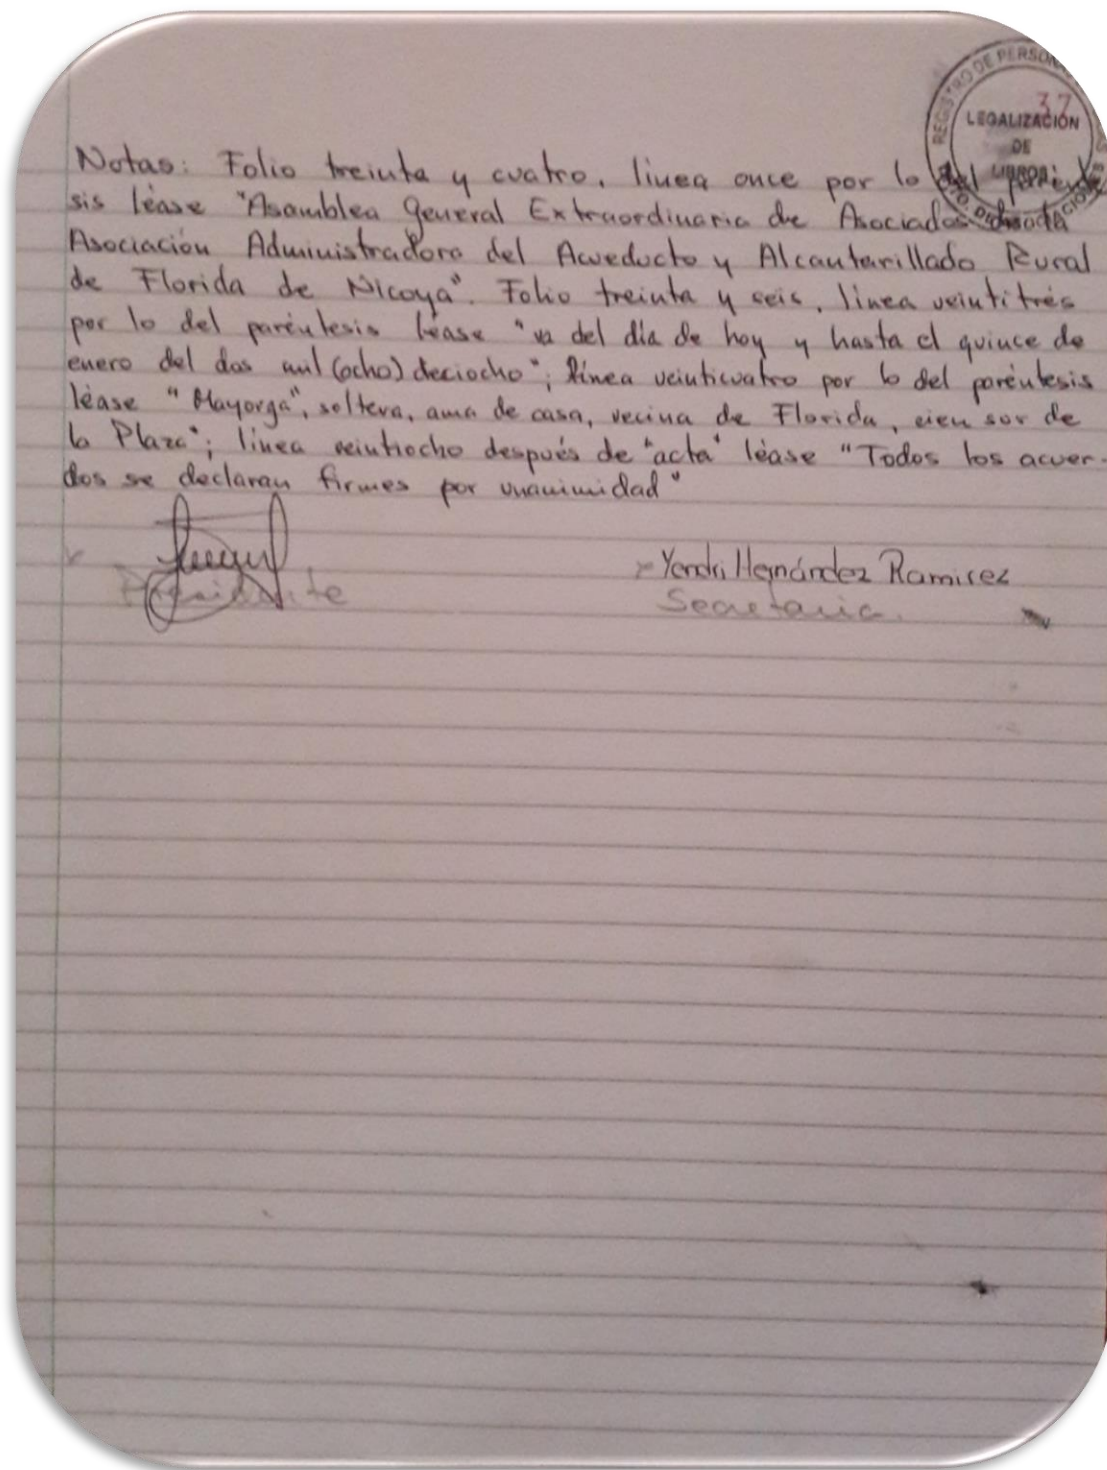 REGISTRO DE PERSONAS
37
LEGALIZACIÓN
DE
LIBROS
Notas: Folio treinta y cuatro, línea once por lo del parénte
sis léase "Asamblea General Extraordinaria de Asociados de la
Asociación Administradora del Acueducto y Alcantarillado Rural
de Florida de Nicoya". Folio treinta y seis, línea veintitrés
por lo del paréntesis léase "va del día de hoy y hasta el quince de
enero del dos mil (ocho) deciocho"; línea veinticuatro por lo del paréntesis
léase "Mayorga", soltera, ama de casa, vecina de Florida, cien sur de
la Plaza"; línea veintiocho después de "acta" léase "Todos los acuer-
dos se declaran firmes por unanimidad"
Yendri Hernández Ramirez
Presidente
Secretaria.